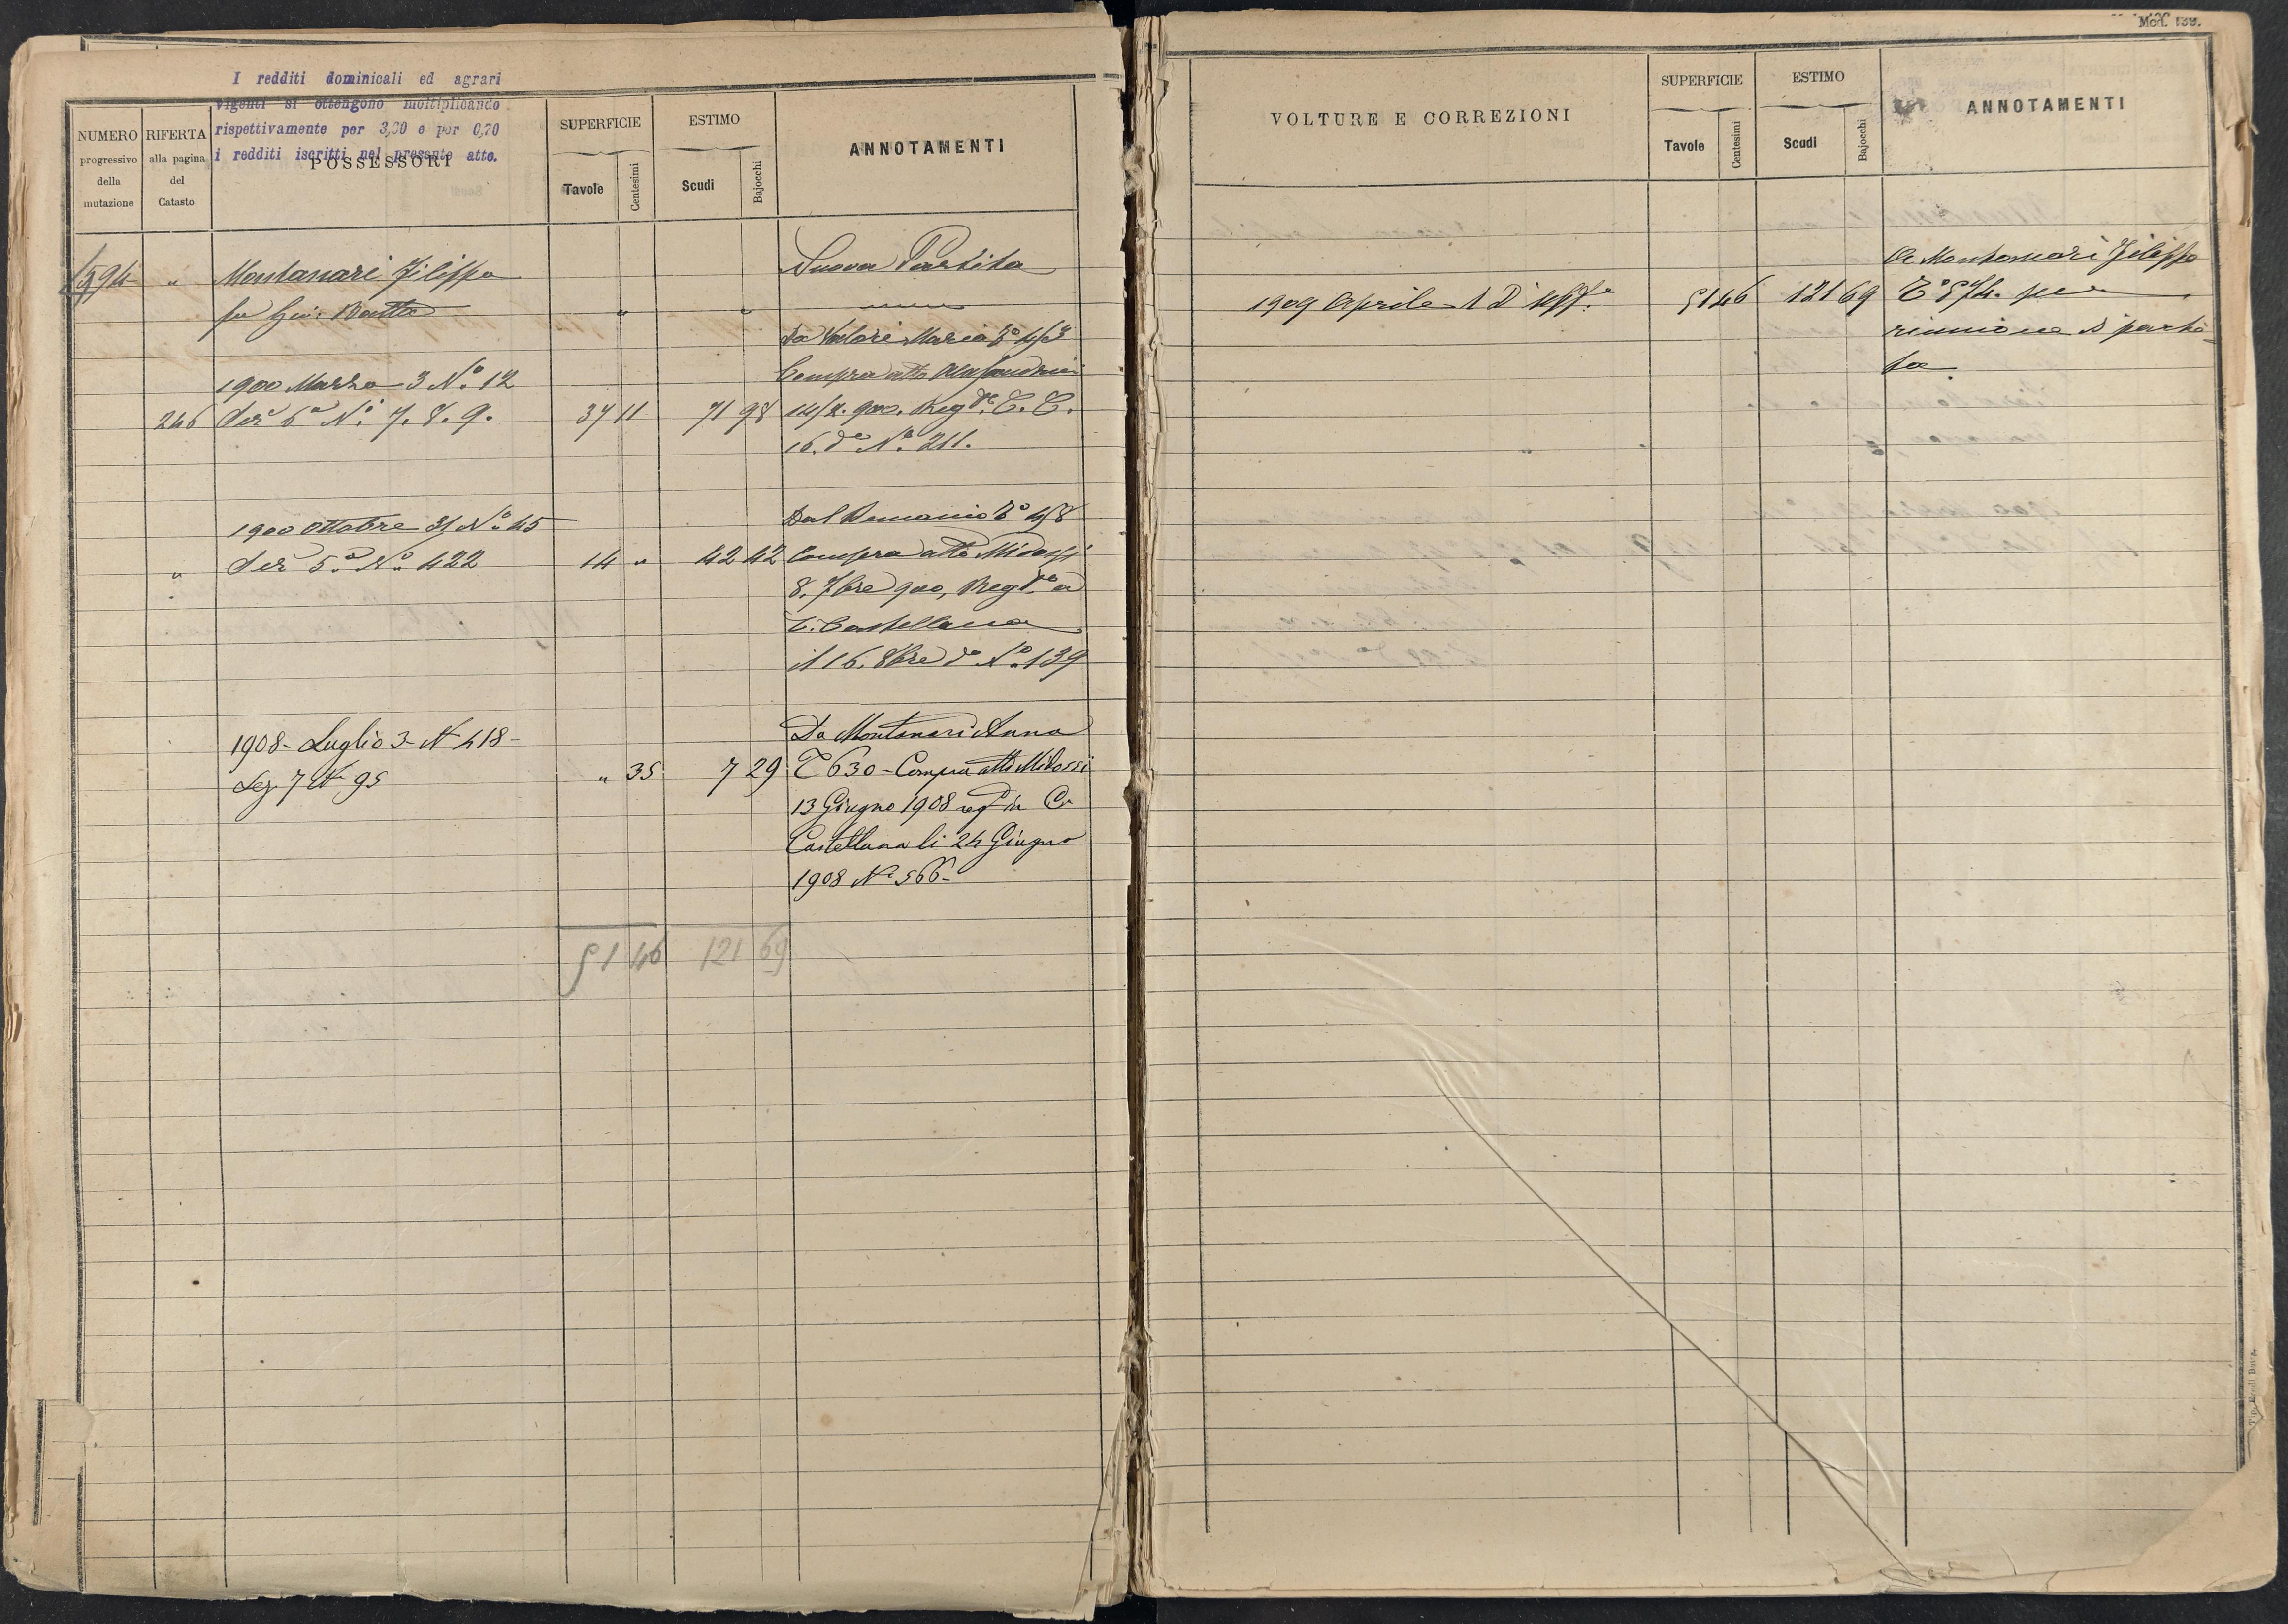 I redditi dominicali ed agrari
vigenti si ottengono moltiplicando
rispettivamente per 3,00 e per 0,70
i redditi iscritti nel presente atto.
NUMERO
progressivo
della
mutazione
RIFERTA
alla pagina
del
Catasto
POSSESSORI
SUPERFICIE
Tavole
Centesimi
ESTIMO
Scudi
Bajocchi
ANNOTAMENTI
594 " Montanari Filippo Nuova Partita
fu Gio: Batta " "
Da Maria
1900 Marzo 3 N.o 12 Compra atto
246 Sez 6a N.i 7. 8. 9. 37 11 71 98 900. Reg.to C. C.
16. do N.o 211.
1900 Ottobre 31 N.o 45 Dal Demanio
" Sez 5a N.o 422 14 " 42 42 Compra atto Midossi
8. 7bre 900, Reg.to a
C. Castellana
il 16. 8bre do N.o 139
1908 - Luglio 3 - N 418 - Da Montanari Anna
Sez. 7 N 95 " 35 7 29 T 630 - Compra atto Midossi
13 Giugno 1908 reg in C.
Castellana li 24 Giugno
1908 No 566 -
51 46 121 69
Mod. 139.
VOLTURE E CORREZIONI
SUPERFICIE
Tavole
Centesimi
ESTIMO
Scudi
Bajocchi
ANNOTAMENTI
A Montanari Filippo
1909 Aprile 1 D' Uff.o 51 46 121 69 per
riunione di parti-
ta